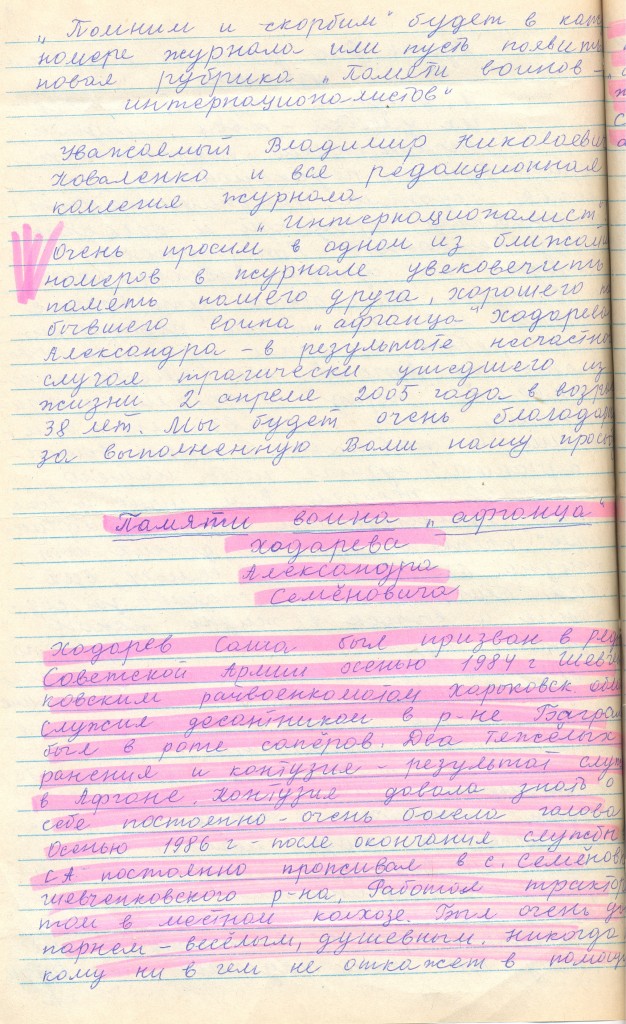 „Помним и скорбим" будет в как
номере журнала или пусть появит
новая рубрика „Памяти воинов –
интернационалистов"
Уважаемый Владимир Николаеви
Коваленко и вся редакционная
коллегия журнала
„Интернационалист"
Очень просим в одном из ближай
номеров в журнале увековечить
память нашего друга, хорошего
бывшего воина „афганца" Ходарева
Александра – в результате несчастно
случая трагически ушедшего из
жизни 2 апреля 2005 года в возра
38 лет. Мы будет очень благодар
за выполненную Вами нашу прось
Памяти воина „афганца"
Ходарева
Александра
Семёновича
Ходарев Саша был призван в ряд
Советской Армии осенью 1984 г Шевч
ковским райвоенкоматом Харьковск. обл
служил десантником в р-не Баграм
был в роте сапёров. Два тяжёлых
ранения и контузия – результат служ
в Афгане. Контузия давала знать о
себе постоянно – очень болела голова
Осенью 1986 г – после окончания службы
СА постоянно проживал в с. Семёнов
Шевченковского р-на, Работал трактор
том в местном колхозе. Был очень
парнем – весёлым, душевным. Никогда
кому ни в чем не откажет в помощи